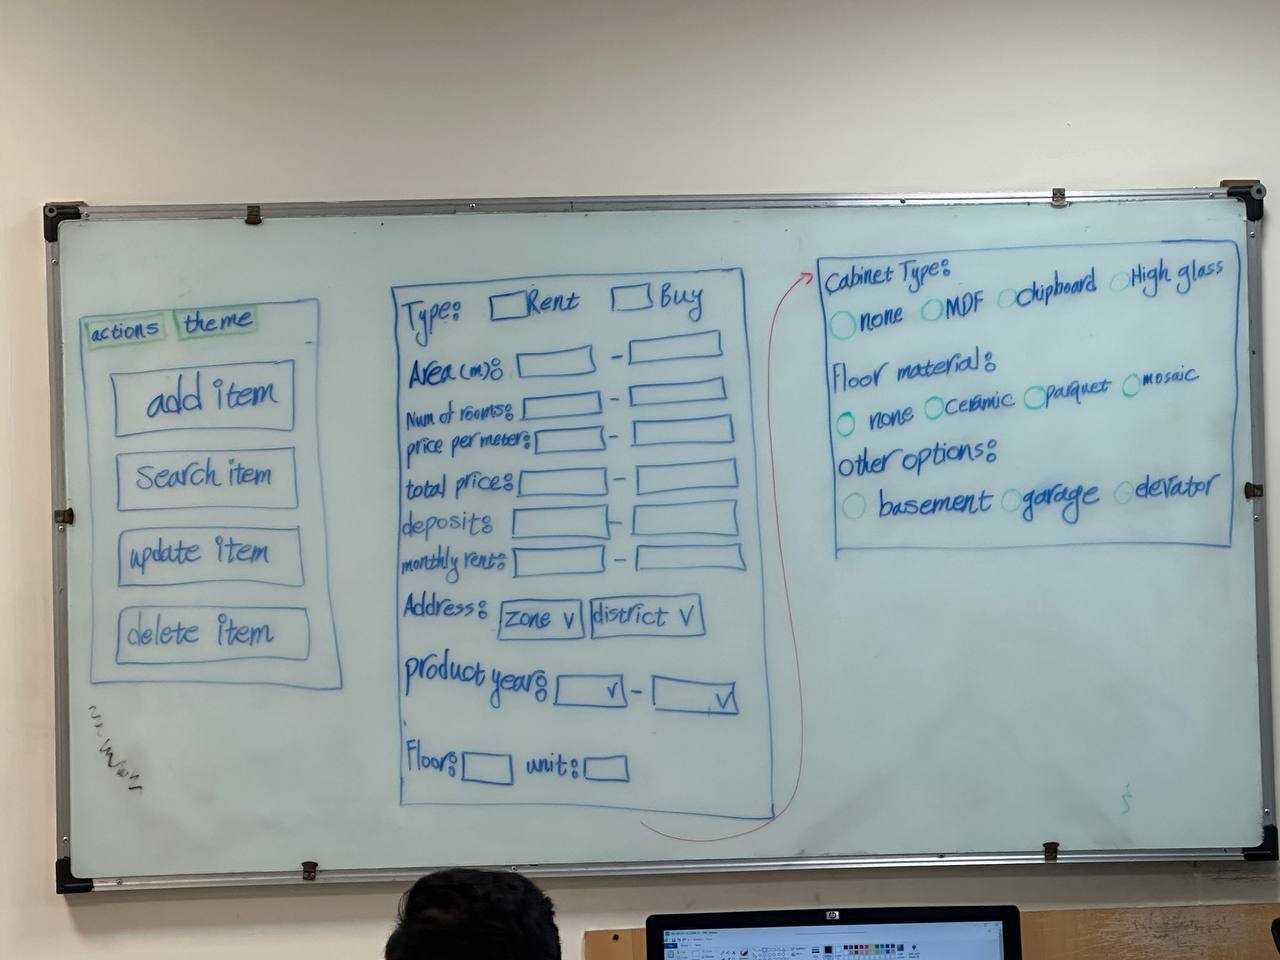 actions theme
add item
search item
update item
delete item
Type: Rent Buy
Area (m): -
Num of rooms: -
price per meter: -
total price: -
deposit: -
monthly rent: -
Address: zone v district v
product year: v - v
Floor: unit:
Cabinet Type:
none MDF Chipboard High glass
Floor material:
none ceramic parquet mosaic
other options:
basement garage elevator
hp